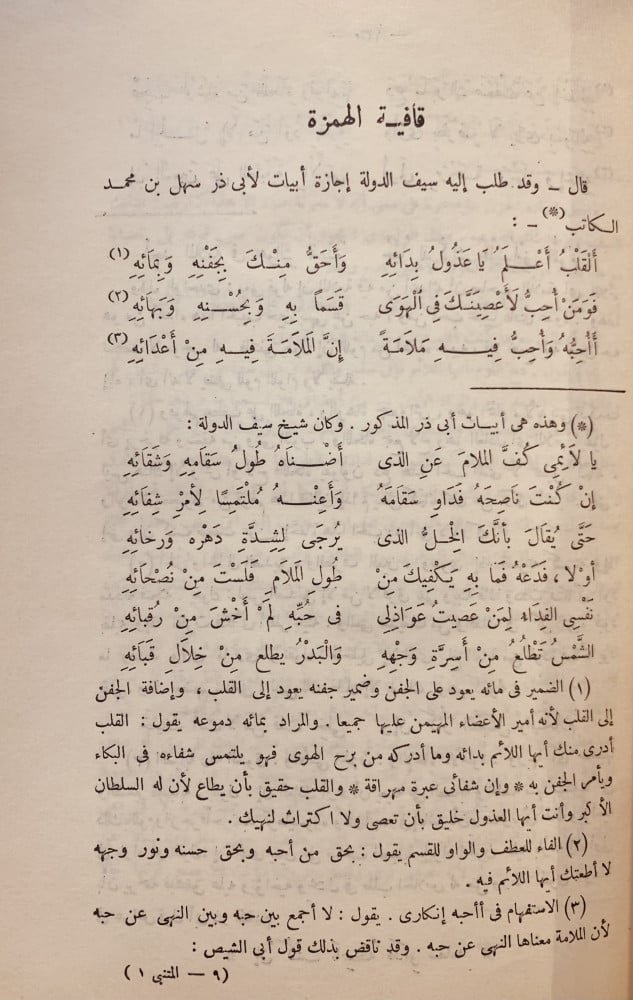 قافيــة الهمزة
قال – وقد طلب إليه سيف الدولة إجازة أبيات لأبى ذر سهل بن محمد
الكاتب(*) – :
أَلْقَلْبُ أَعْلَمُ يَا عَذُولُ بِدَائِهِ وَأَحَقُّ مِنْكَ بِجَفْنِهِ وَبِمَائِهِ (١)
فَوَمَنْ أُحِبُّ لَأَعْصِيَنَّكَ فِى الْهَوَى قَسَمًا بِهِ وَبِحُسْنِهِ وَبَهَائِهِ (٢)
أَأُحِبُّهُ وَأُحِبُّ فِيهِ مَلَامَةً إِنَّ الْمَلَامَةَ فِيهِ مِنْ أَعْدَائِهِ (٣)
(*) وهذه هى أبيات أبى ذر المذكور . وكان شيخ سيف الدولة :
يا لَائِمِى كُفَّ الملامَ عَنِ الذى أَضْنَاهُ طُولُ سَقَامِهِ وَشَقَائِهِ
إنْ كُنْتَ نَاصِحَهُ فَدَاوِ سَقَامَهُ وَأَعِنْهُ مُلْتَمِسًا لِأَمْرِ شِفَائِهِ
حَتَّى يُقَالَ بأنَّكَ الْخِلُّ الذى يُرْجَى لِشِدَّةِ دَهْرِه وَرخائِهِ
أوْ لا ، فَدَعْهُ فَمَا بِهِ يَكْفِيكَ مِنْ طُولِ الملَامِ فَلَسْتَ مِنْ نُصَحَائِهِ
نَفْسِى الفِدَاء لِمَنْ عَصيتُ عَوَاذِلِى فى حُبِّهِ لَمْ أَخْشَ مِنْ رُقبائِهِ
الشَّمْسُ تَطْلُعُ مِنْ أَسِرَّةِ وَجْهِهِ وَالْبَدْرُ يطلع مِنْ خِلَالِ قَبَائِهِ
(١) الضمير فى مائه يعود على الجفن وضمير جفنه يعود إلى القلب ، وإضافة الجفن
إلى القلب لأنه أمير الأعضاء المهيمن عليها جميعا . والمراد بمائه دموعه يقول : القلب
أدرى منك أيها اللائم بدائه وما أدركه من برح الهوى فهو يلتمس شفاءه فى البكاء
ويأمر الجفن به * وإن شفائى عبرة مهراقة * والقلب حقيق بأن يطاع لأن له السلطان
الأكبر وأنت أيها العذول خليق بأن تعصى ولا اكتراث لنهيك .
(٢) الفاء للعطف والواو للقسم يقول : بحق من أحبه وبحق حسنه ونور وجهه
لا أطعتك أيها اللائم فيه .
(٣) الاستفهام فى أأحبه إنكارى . يقول : لا أجمع بين حبه وبين النهى عن حبه
لأن الملامة معناها النهى عن حبه . وقد ناقض بذلك قول أبى الشيص :
(٩ – المتنبى ١)